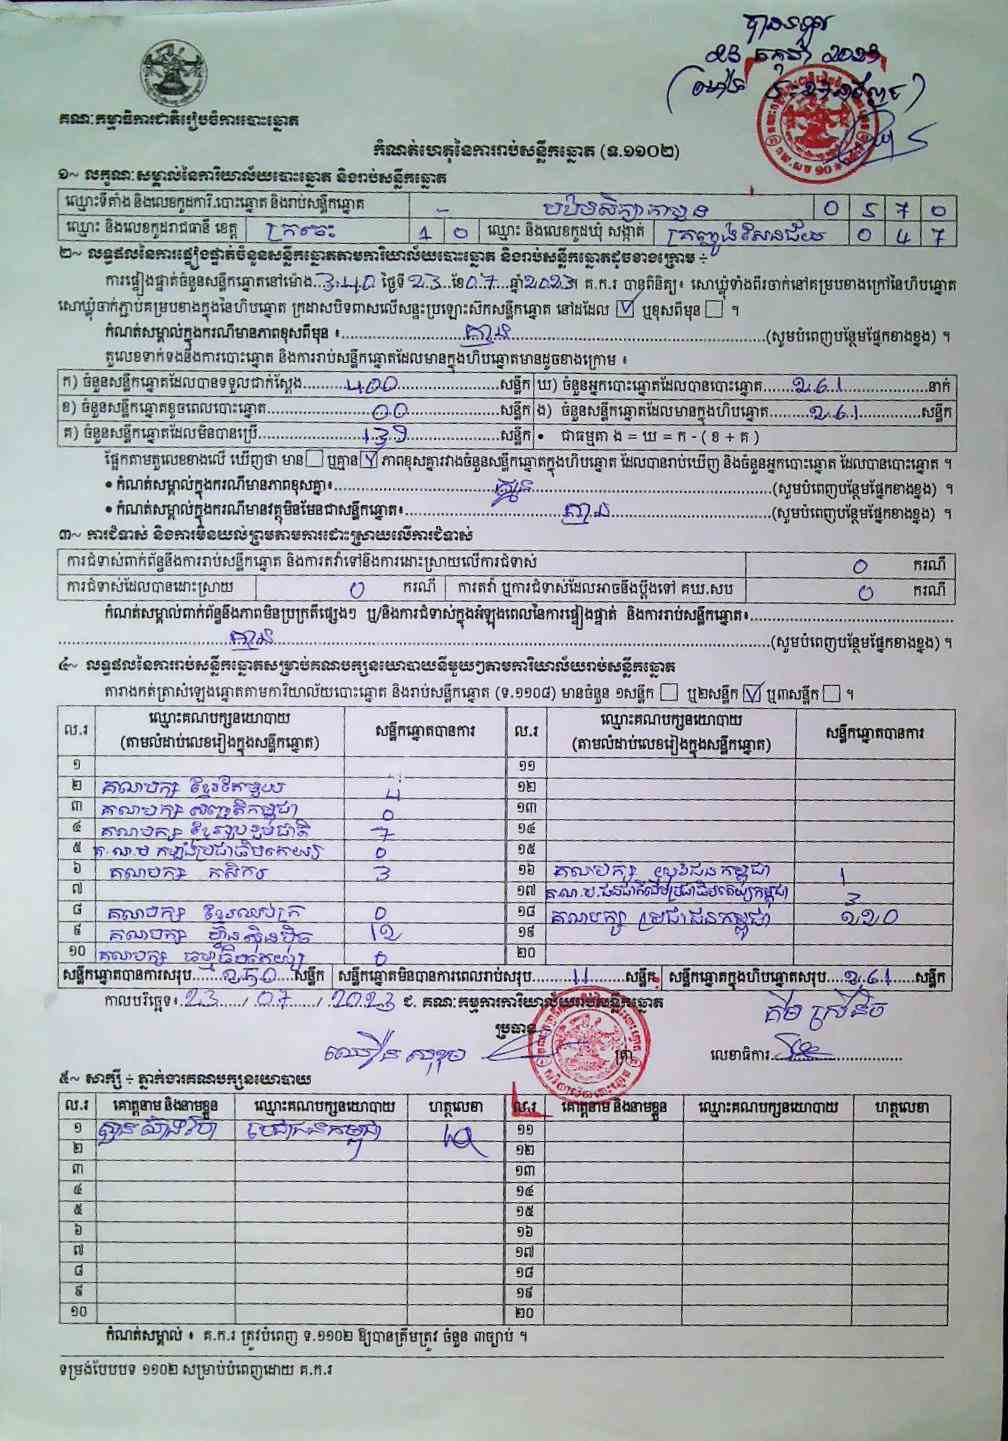 បានឃើញ
គណៈកម្មាធិការជាតិរៀបចំការបោះឆ្នោត
កំណត់ហេតុនៃការរាប់សន្លឹកឆ្នោត (ទ.១១០២)
១~ លក្ខណៈសម្គាល់នៃការិយាល័យបោះឆ្នោត និងរាប់សន្លឹកឆ្នោត
ឈ្មោះទីតាំង និងលេខកូដការិ.បោះឆ្នោត និងរាប់សន្លឹកឆ្នោត 0 5 7 0
ឈ្មោះ និងលេខកូដរាជធានី ខេត្ត ក្រចេះ 1 0 ឈ្មោះ និងលេខកូដឃុំ សង្កាត់ 0 4 7
២~ លទ្ធផលនៃការផ្ទៀងផ្ទាត់ចំនួនសន្លឹកឆ្នោតតាមការិយាល័យបោះឆ្នោត និងរាប់សន្លឹកឆ្នោតដូចខាងក្រោម ÷
ការផ្ទៀងផ្ទាត់ចំនួនសន្លឹកឆ្នោតនៅម៉ោង 3:40 ថ្ងៃទី 23 ខែ 07 ឆ្នាំ 2023។ គ.ក.រ បានពិនិត្យ៖ សោឃ្លុំទាំងពីរចាក់នៅគម្របខាងក្រៅនៃហិបឆ្នោត
សោឃ្លុំចាក់ភ្ជាប់គម្របខាងក្នុងនៃហិបឆ្នោត ក្រដាសបិទពាសលើសន្ទះប្រឡោះសឹកសន្លឹកឆ្នោត នៅដដែល ☑ ឬខុសពីមុន ☐ ។
កំណត់សម្គាល់ក្នុងករណីមានភាពខុសពីមុន ៖ គ្មាន (សូមបំពេញបន្ថែមផ្នែកខាងខ្នង) ។
តួលេខទាក់ទងនឹងការបោះឆ្នោត និងការរាប់សន្លឹកឆ្នោតដែលមានក្នុងហិបឆ្នោតមានដូចខាងក្រោម ៖
ក) ចំនួនសន្លឹកឆ្នោតដែលបានទទួលជាក់ស្តែង 400 សន្លឹក ឃ) ចំនួនអ្នកបោះឆ្នោតដែលបានបោះឆ្នោត 261 នាក់
ខ) ចំនួនសន្លឹកឆ្នោតខូចពេលបោះឆ្នោត 00 សន្លឹក ង) ចំនួនសន្លឹកឆ្នោតដែលមានក្នុងហិបឆ្នោត 261 សន្លឹក
គ) ចំនួនសន្លឹកឆ្នោតដែលមិនបានប្រើ 139 សន្លឹក • ជាធម្មតា ង = ឃ = ក - ( ខ + គ )
ផ្អែកតាមតួលេខខាងលើ ឃើញថា មាន ☐ ឬគ្មាន ☑ ភាពខុសគ្នារវាងចំនួនសន្លឹកឆ្នោតក្នុងហិបឆ្នោត ដែលបានរាប់ឃើញ និងចំនួនអ្នកបោះឆ្នោត ដែលបានបោះឆ្នោត ។
• កំណត់សម្គាល់ក្នុងករណីមានភាពខុសគ្នា៖ គ្មាន (សូមបំពេញបន្ថែមផ្នែកខាងខ្នង) ។
• កំណត់សម្គាល់ក្នុងករណីមានវត្ថុមិនមែនជាសន្លឹកឆ្នោត៖ គ្មាន (សូមបំពេញបន្ថែមផ្នែកខាងខ្នង) ។
៣~ ការជំទាស់ និងការមិនយល់ព្រមតាមការដោះស្រាយលើការជំទាស់
ការជំទាស់ពាក់ព័ន្ធនឹងការរាប់សន្លឹកឆ្នោត និងការតវ៉ាទៅនឹងការដោះស្រាយលើការជំទាស់ 0 ករណី
ការជំទាស់ដែលបានដោះស្រាយ 0 ករណី ការតវ៉ា ឬការជំទាស់ដែលអាចនឹងប្តឹងទៅ គឃ.សប 0 ករណី
កំណត់សម្គាល់ពាក់ព័ន្ធនឹងភាពមិនប្រក្រតីផ្សេងៗ ឬ/និងការជំទាស់ក្នុងអំឡុងពេលនៃការផ្ទៀងផ្ទាត់ និងការរាប់សន្លឹកឆ្នោត៖
គ្មាន (សូមបំពេញបន្ថែមផ្នែកខាងខ្នង) ។
៤~ លទ្ធផលនៃការរាប់សន្លឹកឆ្នោតសម្រាប់គណបក្សនយោបាយនីមួយៗតាមការិយាល័យរាប់សន្លឹកឆ្នោត
តារាងកត់ត្រាសំឡេងឆ្នោតតាមការិយាល័យបោះឆ្នោត និងរាប់សន្លឹកឆ្នោត (ទ.១១០៨) មានចំនួន ១សន្លឹក ☐ ឬ២សន្លឹក ☑ ឬ៣សន្លឹក ☐ ។
ល.រ ឈ្មោះគណបក្សនយោបាយ (តាមលំដាប់លេខរៀងក្នុងសន្លឹកឆ្នោត) សន្លឹកឆ្នោតបានការ ល.រ ឈ្មោះគណបក្សនយោបាយ (តាមលំដាប់លេខរៀងក្នុងសន្លឹកឆ្នោត) សន្លឹកឆ្នោតបានការ
១ ១១
២ គណបក្ស ខ្មែរតែមួយ 4 ១២
៣ គណបក្ស សញ្ជាតិកម្ពុជា 0 ១៣
៤ គណបក្ស ខ្មែររួបរួមជាតិ 7 ១៤
៥ គ.ណ.ប កម្លាំងប្រជាធិបតេយ្យ 0 ១៥
៦ គណបក្ស កសិករ 3 ១៦ គណបក្ស យុវជនកម្ពុជា 1
៧ ១៧ គណ.ប.ជនជាតិដើមប្រជាធិបតេយ្យកម្ពុជា 3
៨ គណបក្ស ខ្មែរឈប់ក្រ 0 ១៨ គណបក្ស ប្រជាជនកម្ពុជា 220
៩ គណបក្ស ហ្វ៊ុនស៊ិនប៉ិច 12 ១៩
១០ គណបក្ស ធម្មាធិបតេយ្យ 0 ២០
សន្លឹកឆ្នោតបានការសរុប 250 សន្លឹក សន្លឹកឆ្នោតមិនបានការពេលរាប់សរុប 11 សន្លឹក សន្លឹកឆ្នោតក្នុងហិបឆ្នោតសរុប 261 សន្លឹក
កាលបរិច្ឆេទ៖ 23 / 07 / 2023 ជ. គណៈកម្មការការិយាល័យរាប់សន្លឹកឆ្នោត
ប្រធាន
ត្រា លេខាធិការ
៥~ សាក្សី ÷ ភ្នាក់ងារគណបក្សនយោបាយ
ល.រ គោត្តនាម និងនាមខ្លួន ឈ្មោះគណបក្សនយោបាយ ហត្ថលេខា ល.រ គោត្តនាម និងនាមខ្លួន ឈ្មោះគណបក្សនយោបាយ ហត្ថលេខា
១ ប្រជាជនកម្ពុជា ១១
២ ១២
៣ ១៣
៤ ១៤
៥ ១៥
៦ ១៦
៧ ១៧
៨ ១៨
៩ ១៩
១០ ២០
កំណត់សម្គាល់ ៖ គ.ក.រ ត្រូវបំពេញ ទ.១១០២ ឱ្យបានត្រឹមត្រូវ ចំនួន ៣ច្បាប់ ។
ទម្រង់បែបបទ ១១០២ សម្រាប់បំពេញដោយ គ.ក.រ